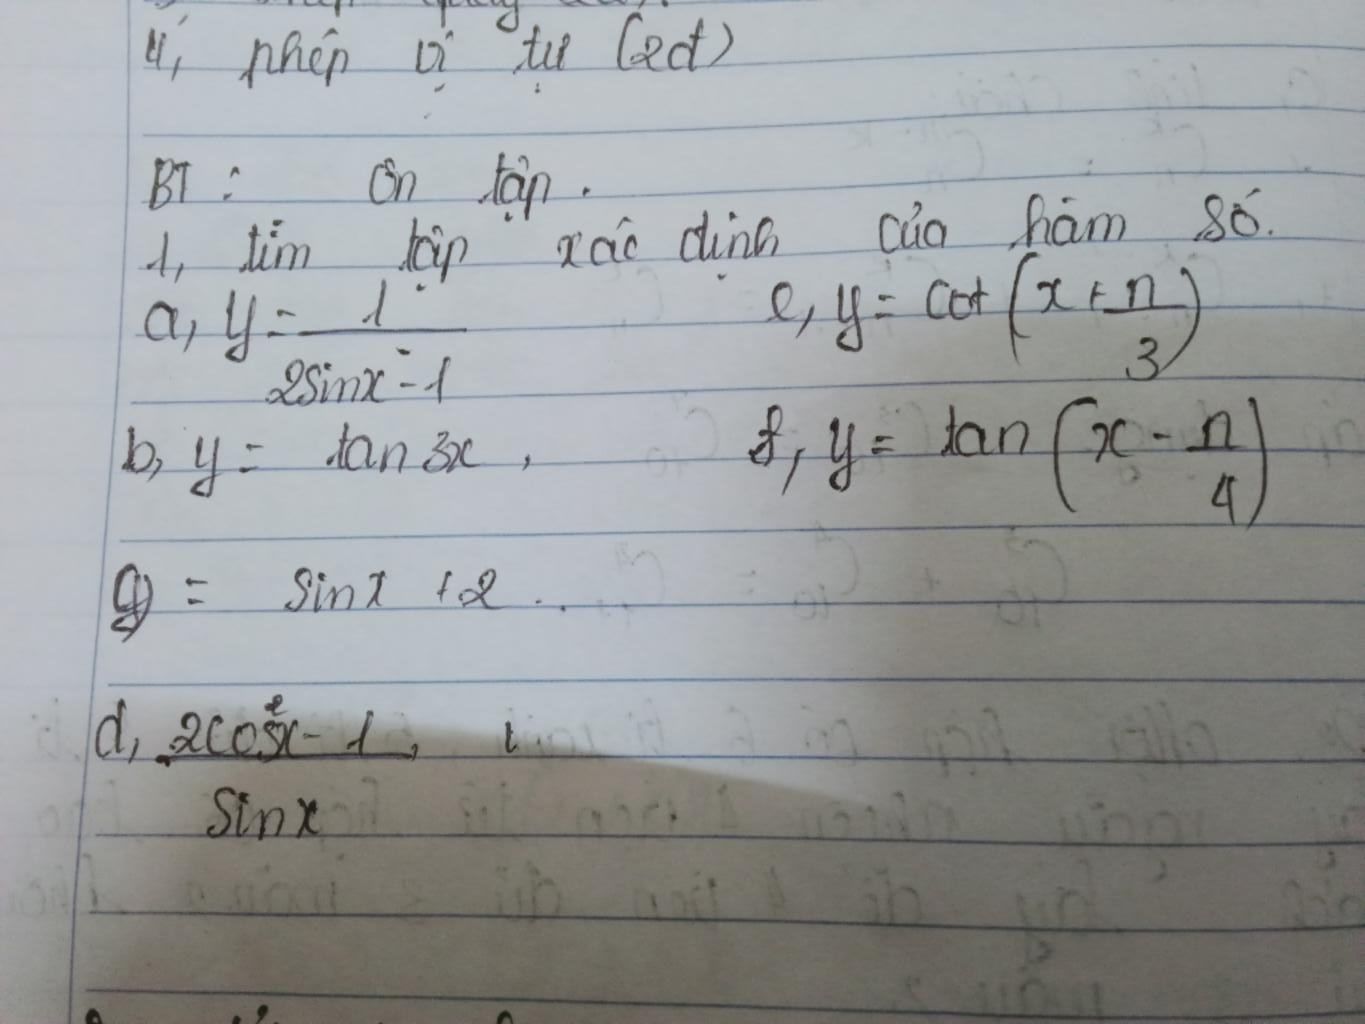 4, phép vị tự (2đ)
BT: Ôn tập.
1, tìm tập xác định của hàm số.
a, y = 1/(2sinx - 1)    e, y = cot(x + π/3)
b, y = tan3x,    f, y = tan(x - π/4)
g) = sinx + 2..
d, (2cos²x - 1)/sinx,